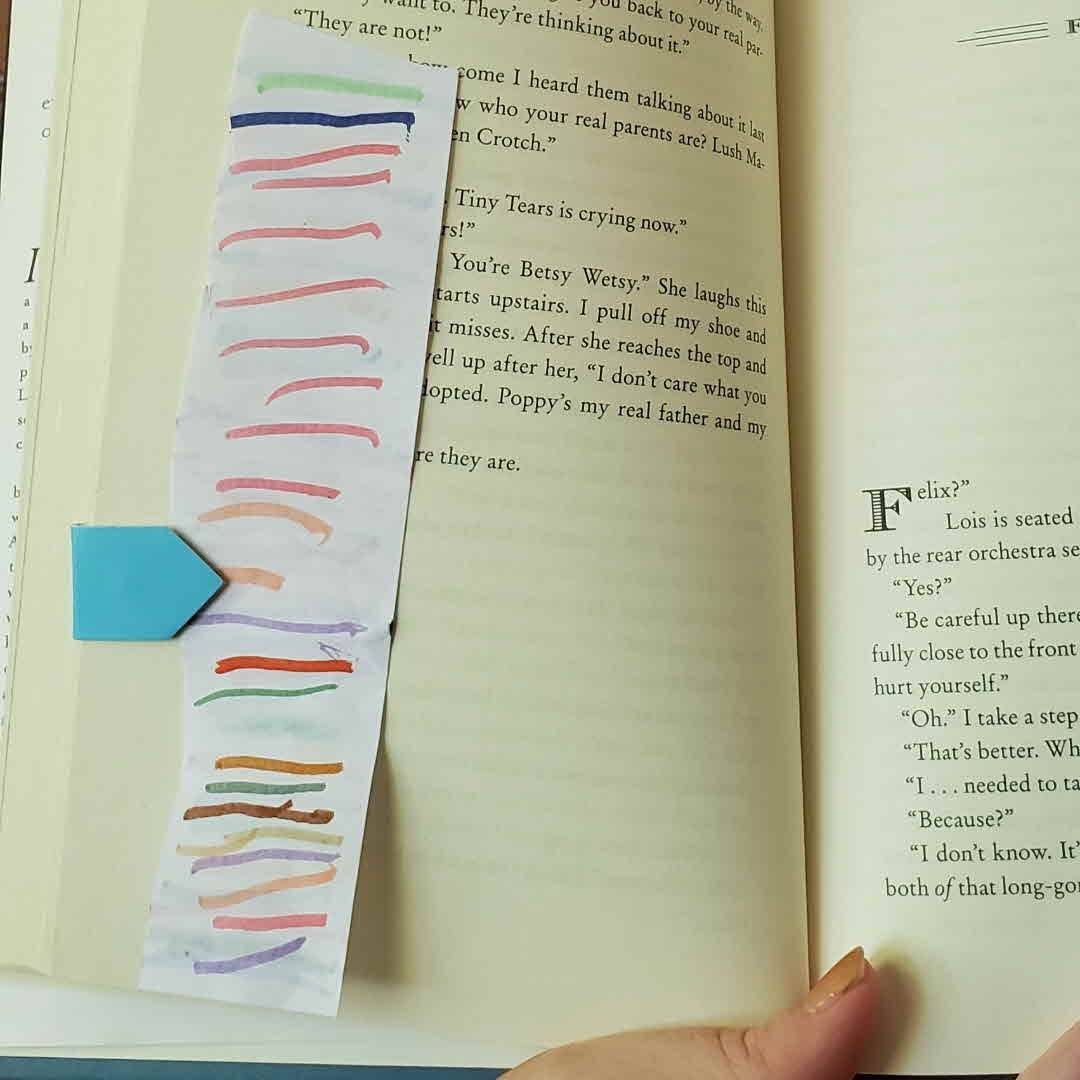 you back to your real par-
want to. They're thinking about it."
"They are not!"
come I heard them talking about it last
who your real parents are? Lush Ma-
Crotch."
Tiny Tears is crying now."
You're Betsy Wetsy." She laughs this
upstairs. I pull off my shoe and
misses. After she reaches the top and
up after her, "I don't care what you
Poppy's my real father and my
they are.
Felix?"
Lois is seated
by the rear orchestra se
"Yes?"
"Be careful up there
fully close to the front
hurt yourself."
"Oh." I take a step
"That's better. Wh
"I . . . needed to ta
"Because?"
"I don't know. It'
both of that long-gon